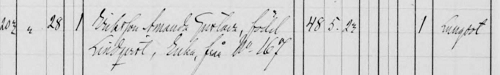 202 " 28 1 Eriksson Amanda Gustava, född 48 5 23 1 Lungsot
Lindqvist, Enka, från No 167